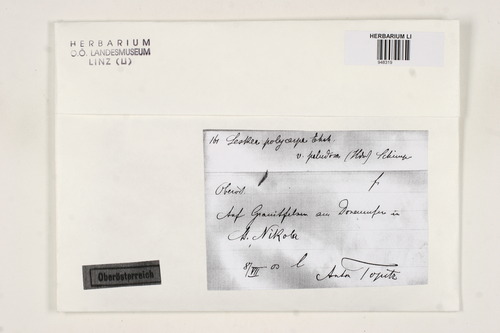 HERBARIUM
O.Ö. LANDESMUSEUM
LINZ (LI)
HERBARIUM LI
948319
Leskea polycarpa Ehrh.
v. paludosa (Hdw) Schimp
f.
Oberöst.
Auf Granitfelsen am Donauufer in
St. Nikola
8/VII 03 l
Anton Topitz
Oberösterreich